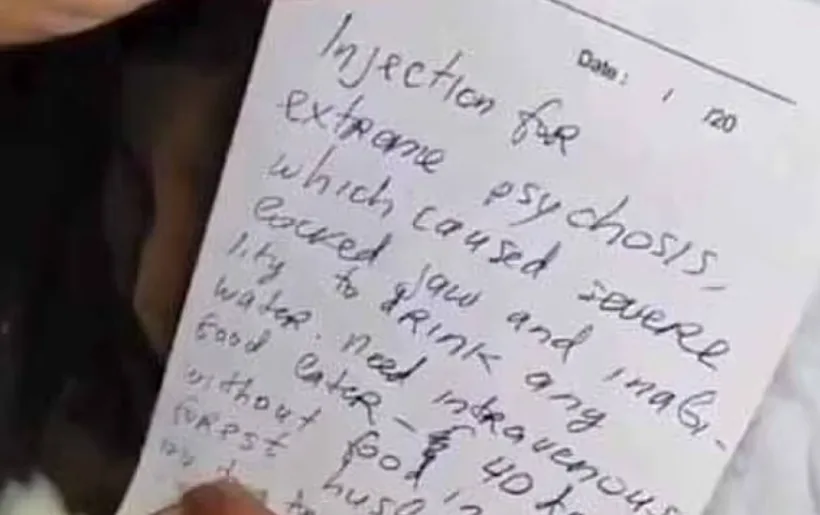 Date: / /20
Injection for
extreme psychosis,
which caused severe
locked jaw and inabi-
lity to drink any
water. Need intravenous
food later - 40 h
without food in
forest husb